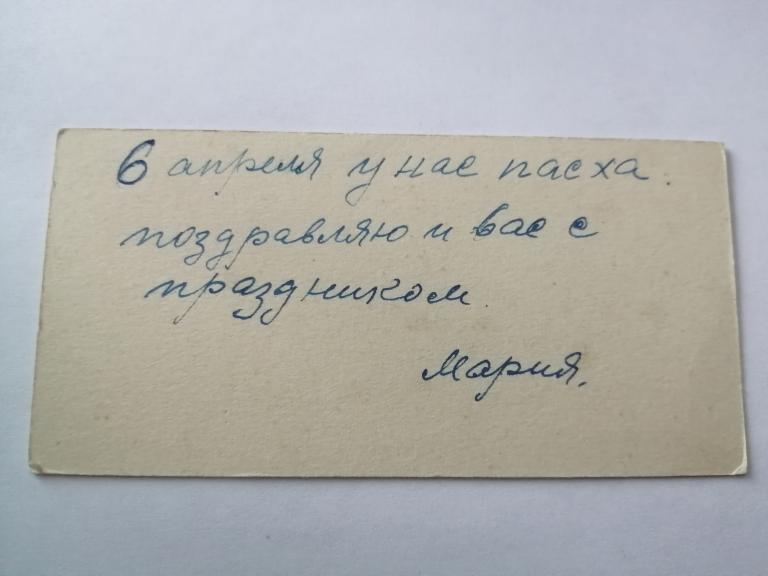 6 апреля у нас пасха.
поздравляю и вас с
праздником.
Мария.